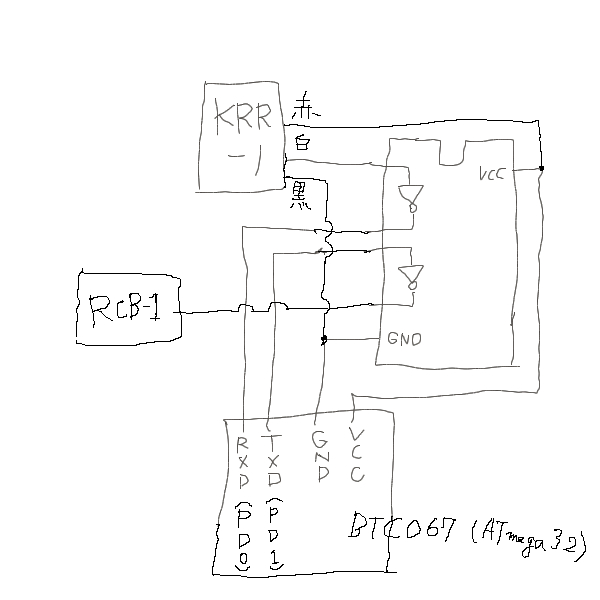 KRR
-1
赤
白
黒
VCC
RCB-1
GND
RXD (PD0)
TXD (PD1)
GND
VCC
BTC067 (ATmega32)